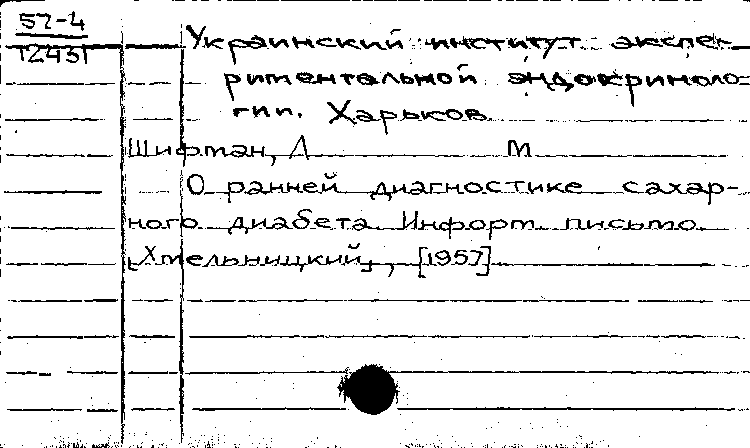 57-4
12431
Украинский институт экспе-
риментальной эндокриноло-
гии. Харьков
Шифман, Л М
О ранней диагностике сахар-
ного диабета. Информ. письмо.
[Хмельницкий], [1957].